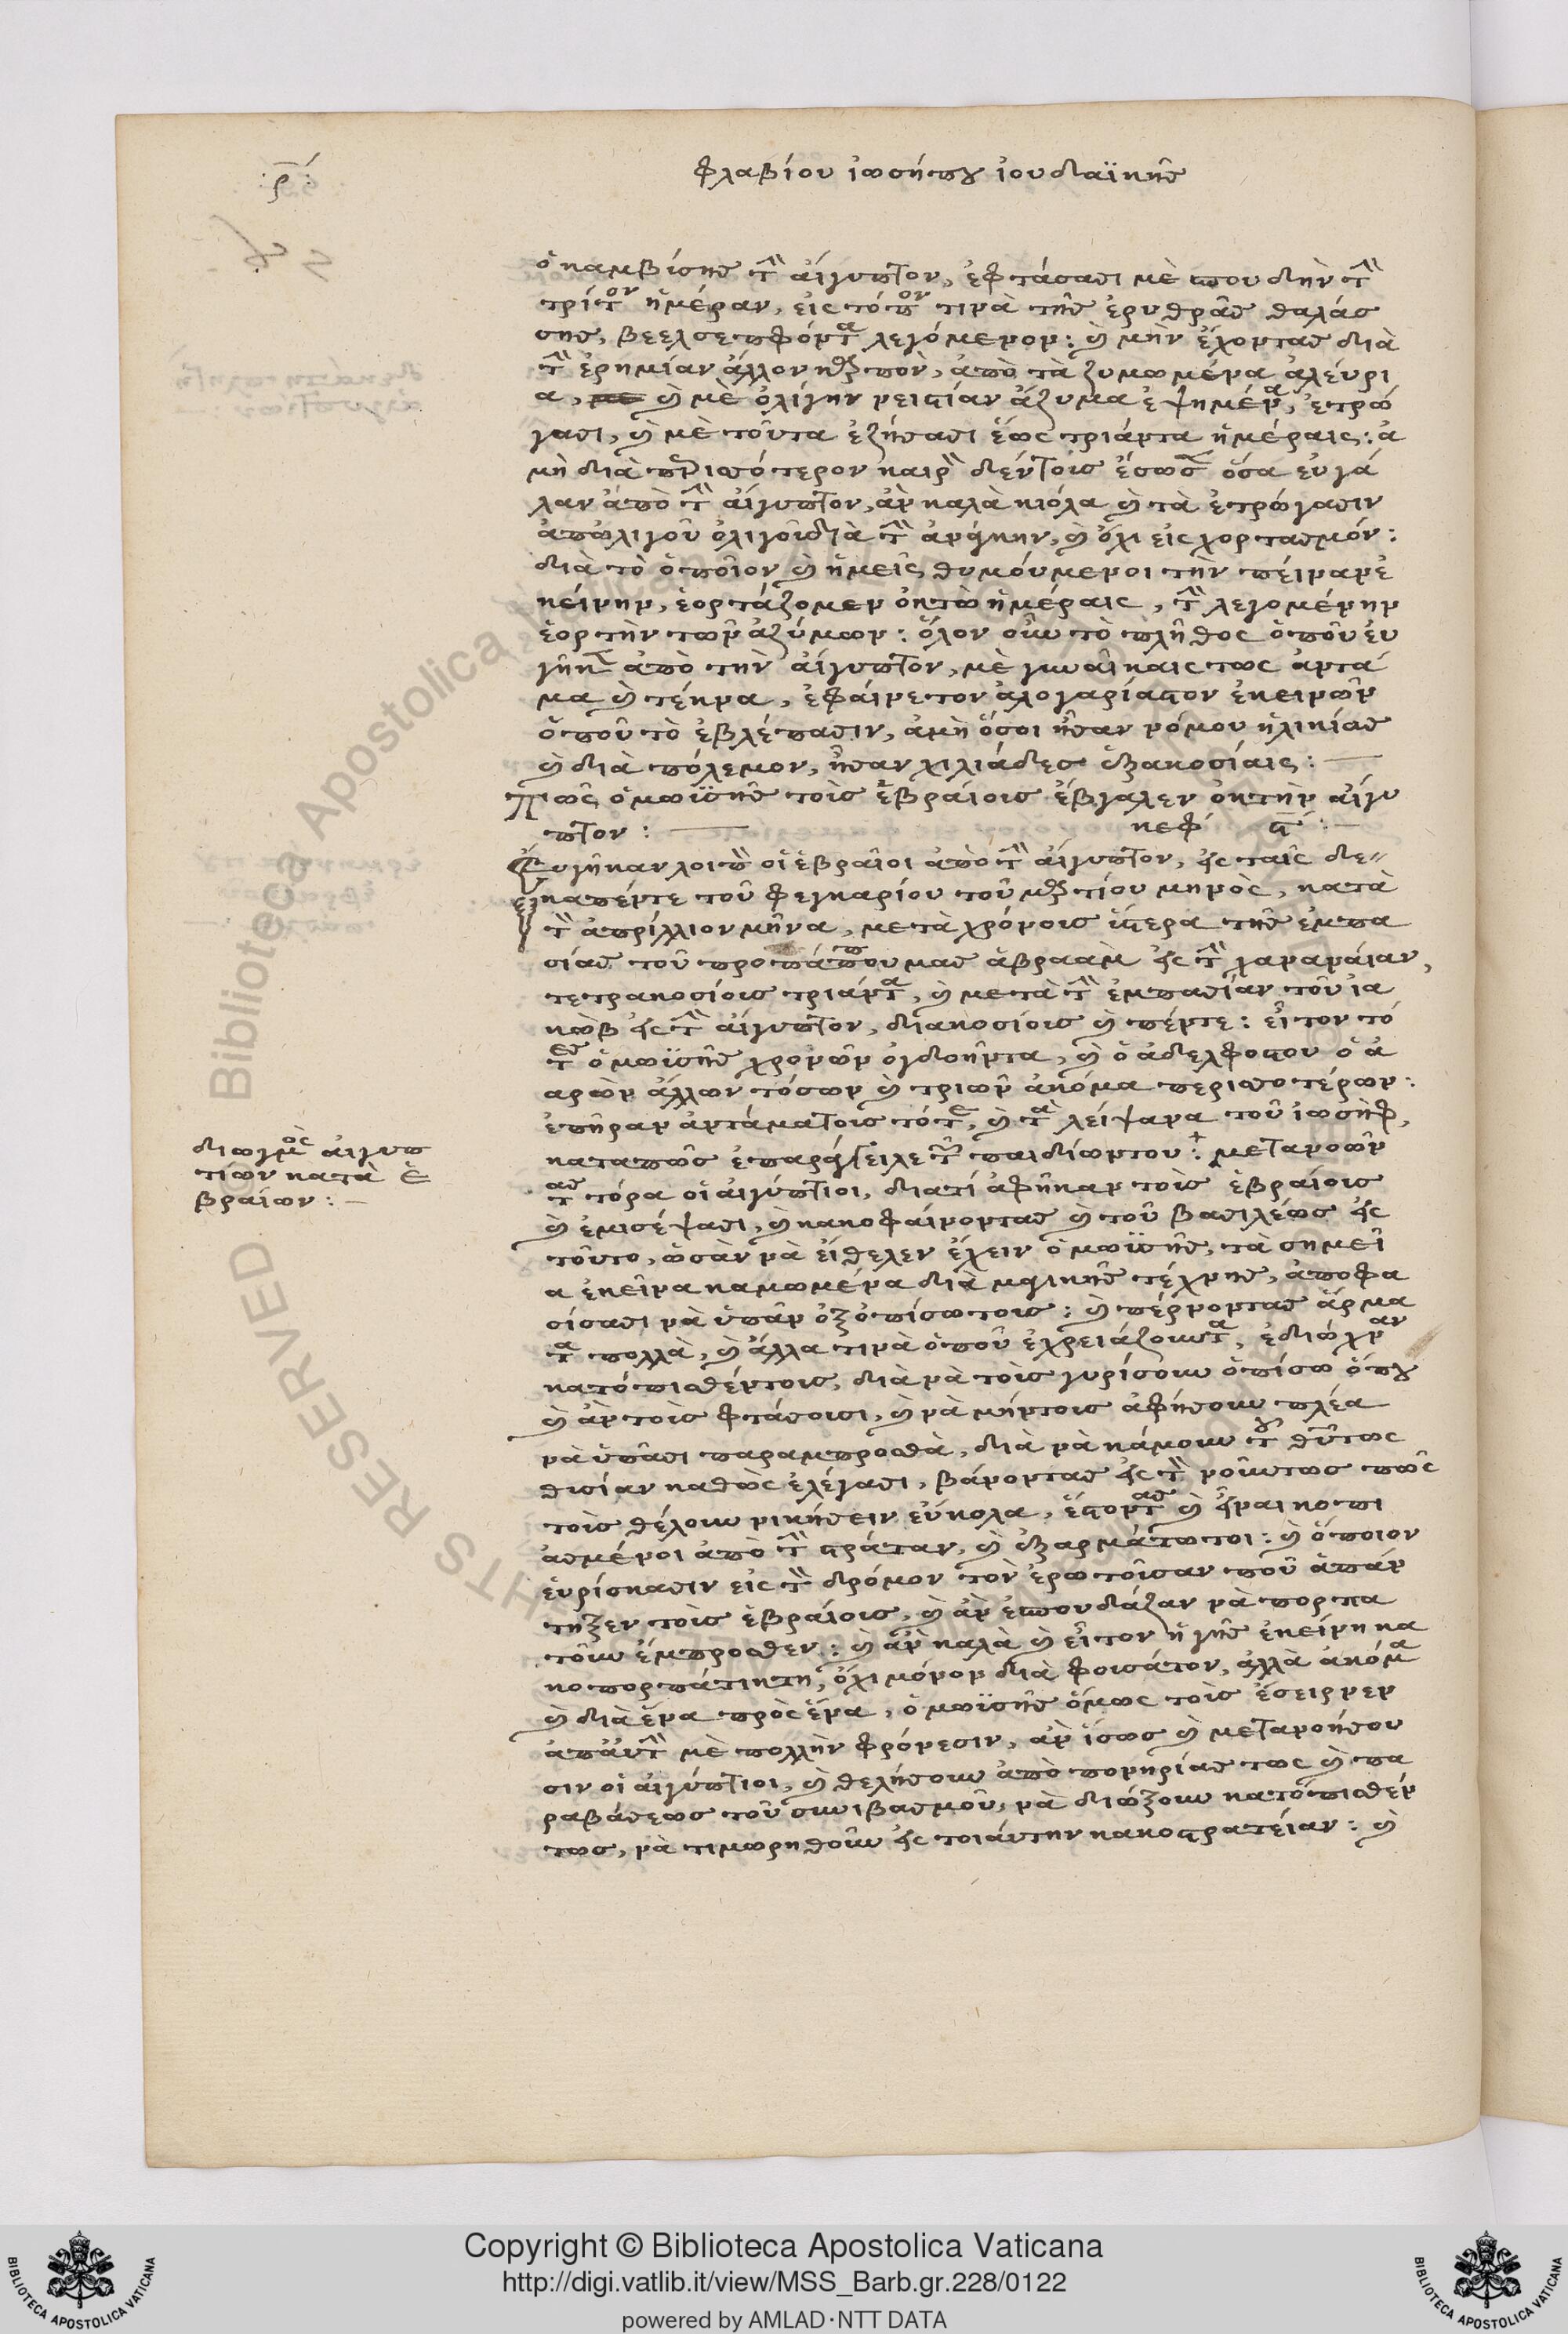 :ρ̅:
φλαβίου ἰωσήπου ἰουδαϊκῆς
ὁ καμβίσης τὴν αἴγυπτον, ἐφτάσασι μὲ σπουδὴν τὴν
τρίτον ἡμέραν, εἰς τόπον τινὰ τῆς ἐρυθρᾶς θαλάσ
σης, βεελσεπφόντα λεγόμενον: καὶ μὴν ἔχοντας διὰ
τὴν ἐρημίαν ἄλλον καρπὸν, ἀπὸ τὰ ζυμωμένα ἀλεύρι
α, καὶ μὲ ὀλίγην νειστίαν ἄζυμα ἐψημένα, ἐτρώ
γασι, καὶ μὲ τοῦτα ἐζήσασι ἕως τριάντα ἡμέραις: ἀ
μὴ διὰ περισσότερον καιρὸν δέν τοις ἔσωσαν ὅσα εὐγά
λαν ἀπὸ τὴν αἴγυπτον, ἂν καλὰ κιόλα καὶ τὰ ἐτρώγασιν
ἀπὠλιγοῦ ὀλιγοῦ διὰ τὴν ἀνάγκην, καὶ ὄχι εἰς χορτασμόν:
διὰ τὸ ὁποῖον καὶ ἡμεῖς θυμούμενοι τὴν πεῖναν ἐ
κείνην, ἑορτάζομεν ὀκτὼ ἡμέραις, τὴν λεγομένην
ἑορτὴν τῶν ἀζύμων: ὅλον οὖν τὸ πλῆθος ὁποῦ εὐ
γῆκαν ἀπὸ τὴν αἴγυπτον, μὲ γυναῖκαις τως ἀντά
μα καὶ τέκνα, ἐφαίνετον ἀλογαρίαστον ἐκεινῶν
ὁποῦ τὸ ἐβλέπασιν, ἀμὴ ὅσοι ἦσαν νόμου ἡλικίας
καὶ διὰ πόλεμον, ἦσαν χιλιάδες ἑξακοσίαις:
Πῶς ὁ μωϋσῆς τοὶς ἑβραίοις ἔβγαλεν ὀκ τὴν αἴγυ
πτον: κεφ ϛ:
Ευγῆκαν λοιπὸν οἱ ἑβραῖοι ἀπὸ τὴν αἴγυπτον, εἰς ταῖς δε
καπέντε τοῦ φεγκαρίου τοῦ μαρτίου μηνὸς, κατὰ
τὸν ἀπρίλλιον μῆνα, μετὰ χρόνοις ὕστερα τῆς ἐμπα
σίας τοῦ προπάππου μας ἀβραὰμ εἰς τὴν χαναναίαν,
τετρακοσίοις τριάντα, καὶ μετὰ τὴν ἐμπασίαν τοῦ ἰα
κὼβ εἰς τὴν αἴγυπτον, διακοσίοις καὶ πέντε: εἶτον τό
τες ὁ μωϋσῆς χρονῶν ὀγδοῆντα, καὶ ὁ ἀδελφός του ὁ ἀ
αρὼν ἄλλων τόσων καὶ τριῶν ἀκόμα περισσοτέρων:
ἐπῆραν ἀντάμα τοις τότε, καὶ τὰ λείψανα τοῦ ἰωσὴφ,
καταπῶς ἐπαράγγειλε τῶν παιδίων του: μετανοῶν
τας τόρα οἱ αἰγύπτιοι, διατί ἀφῆκαν τοὶς ἑβραίοις
καὶ ἐμισέψασι, καὶ κακοφαίνοντας καὶ τοῦ βασιλέως εἰς
τοῦτο, ὡσὰν νὰ εἴθελεν ἔχειν ὁ μωϋσῆς, τὰ σημεῖ
α ἐκεῖνα καμωμένα διὰ μαγικῆς τέχνης, ἀποφα
σίσασι νὰ ὑπᾶν ὀξοπίσω τοις: καὶ πέρνοντας ἅρμα
τα πολλὰ, καὶ ἄλλα τινὰ ὁποῦ ἐχρειάζουντα, ἐδιώχναν
κατόπισθέν τοις, διὰ νὰ τοὶς γυρίσουν ὀπίσω ὅπου
καὶ ἂν τοὶς φτάσουσι, καὶ νὰ μήν τοις ἀφήσουν πλέα
νὰ ὑπᾶσι παραμπροσθὰ, διὰ νὰ κάμουν τοῦ θεοῦ τως
θισίαν καθὼς ἐλέγασι, βάνοντας εἰς τὸν νοῦν τως πῶς
τοὶς θέλουν νικήσειν εὔκολα, ἔστοντας καὶ εἶναι κοπι
ασμένοι ἀπὸ τὴν στράταν, καὶ ἐξαρμάτωτοι: καὶ ὅποιον
εὑρίσκασιν εἰς τὸν δρόμον τὸν ἐρωτοῦσαν ποῦ ἀπάν
τηξεν τοὶς ἑβραίοις, καὶ ἂν ἐσπουδάζαν νὰ πορπα
τοῦν ἔμπροσθεν: καὶ ἂν καλὰ καὶ εἶτον ἡ γῆς ἐκείνη κα
κοπορπάτικτη, ὄχι μόνον διὰ φουσάτον, ἀλλὰ ἀκόμα
καὶ διὰ ἕνα πρὸς ἕνα, ὁ μωϋσῆς ὅμως τοὶς ἔσειρνεν
ἀπ' αὐτὴν μὲ πολλὴν φρόνεσιν, ἂν ἴσως καὶ μετανοήσου
σιν οἱ αἰγύπτιοι, καὶ θελήσουν ἀπὸ πονηρίας τως καὶ πα
ραβάσεως τοῦ συνιβασμοῦ, νὰ διώξουν κατόπισθέν
τως, νὰ τιμωρηθοῦν εἰς τοιαύτην κακοστρατείαν: καὶ
διωγμὸς αἰγυπ
τίων κατὰ ἑ
βραίων:
Copyright © Biblioteca Apostolica Vaticana
http://digi.vatlib.it/view/MSS_Barb.gr.228/0122
powered by AMLAD·NTT DATA
BIBLIOTECA APOSTOLICA VATICANA
BIBLIOTECA APOSTOLICA VATICANA